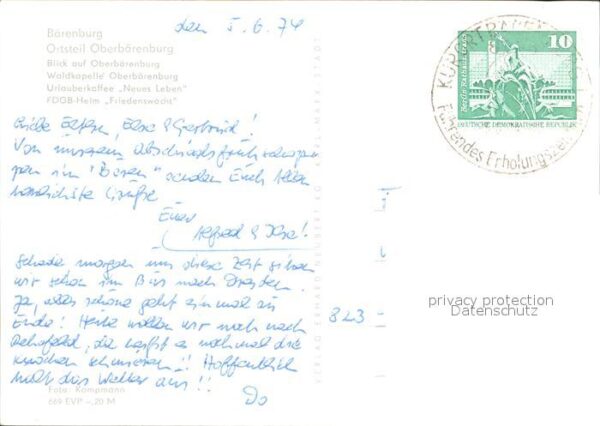 den 5.6.74
Bärenburg
Ortsteil Oberbärenburg
Blick auf Oberbärenburg
Waldkapelle Oberbärenburg
Urlauberkaffee „Neues Leben"
FDGB-Heim „Friedenswacht"
10
Berlin, Rathausstraße
DEUTSCHE DEMOKRATISCHE REPUBLIK
KURORT
Führendes Erholungszentrum
Liebe Eltern, &
Von unserem Abschiedsfrühschoppen
im "Bären" senden Euch allen
herzlichste Grüße
Euer
Alfred & Ilse!
Schade morgen um diese Zeit sitzen
wir schon im Bus nach Dresden.
Ja, alles schöne geht einmal zu
Ende! Heute wollen wir noch nach
Rehefeld, da heißt es noch mal die
Knochen schmieren!! Hoffentlich
hält das Wetter aus!!
Do
823-
VERLAG ERHARD NEUBERT KG KARL-MARX-STADT
privacy protection
Datenschutz
Foto Kampmann
669 EVP -,20 M